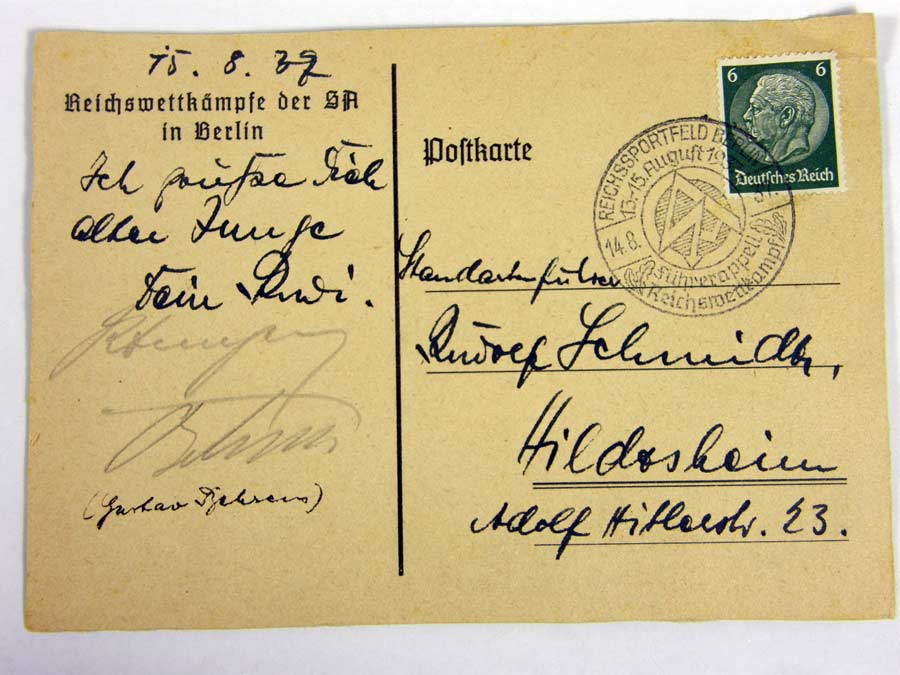 15. 8. 37
Reichswettkämpfe der SA
in Berlin
Ich grüße Dich
alter Junge
Dein Rudi.
(Gustav Behrens)
Postkarte
6 6
Deutsches Reich
REICHSSPORTFELD BERLIN
13.-15. August 19
14.8. 37.
Führerappell
Reichswettkämpfe
Standartenführer
Rudolf Schmidt,
Hildesheim
Adolf Hitlerstr. 23.